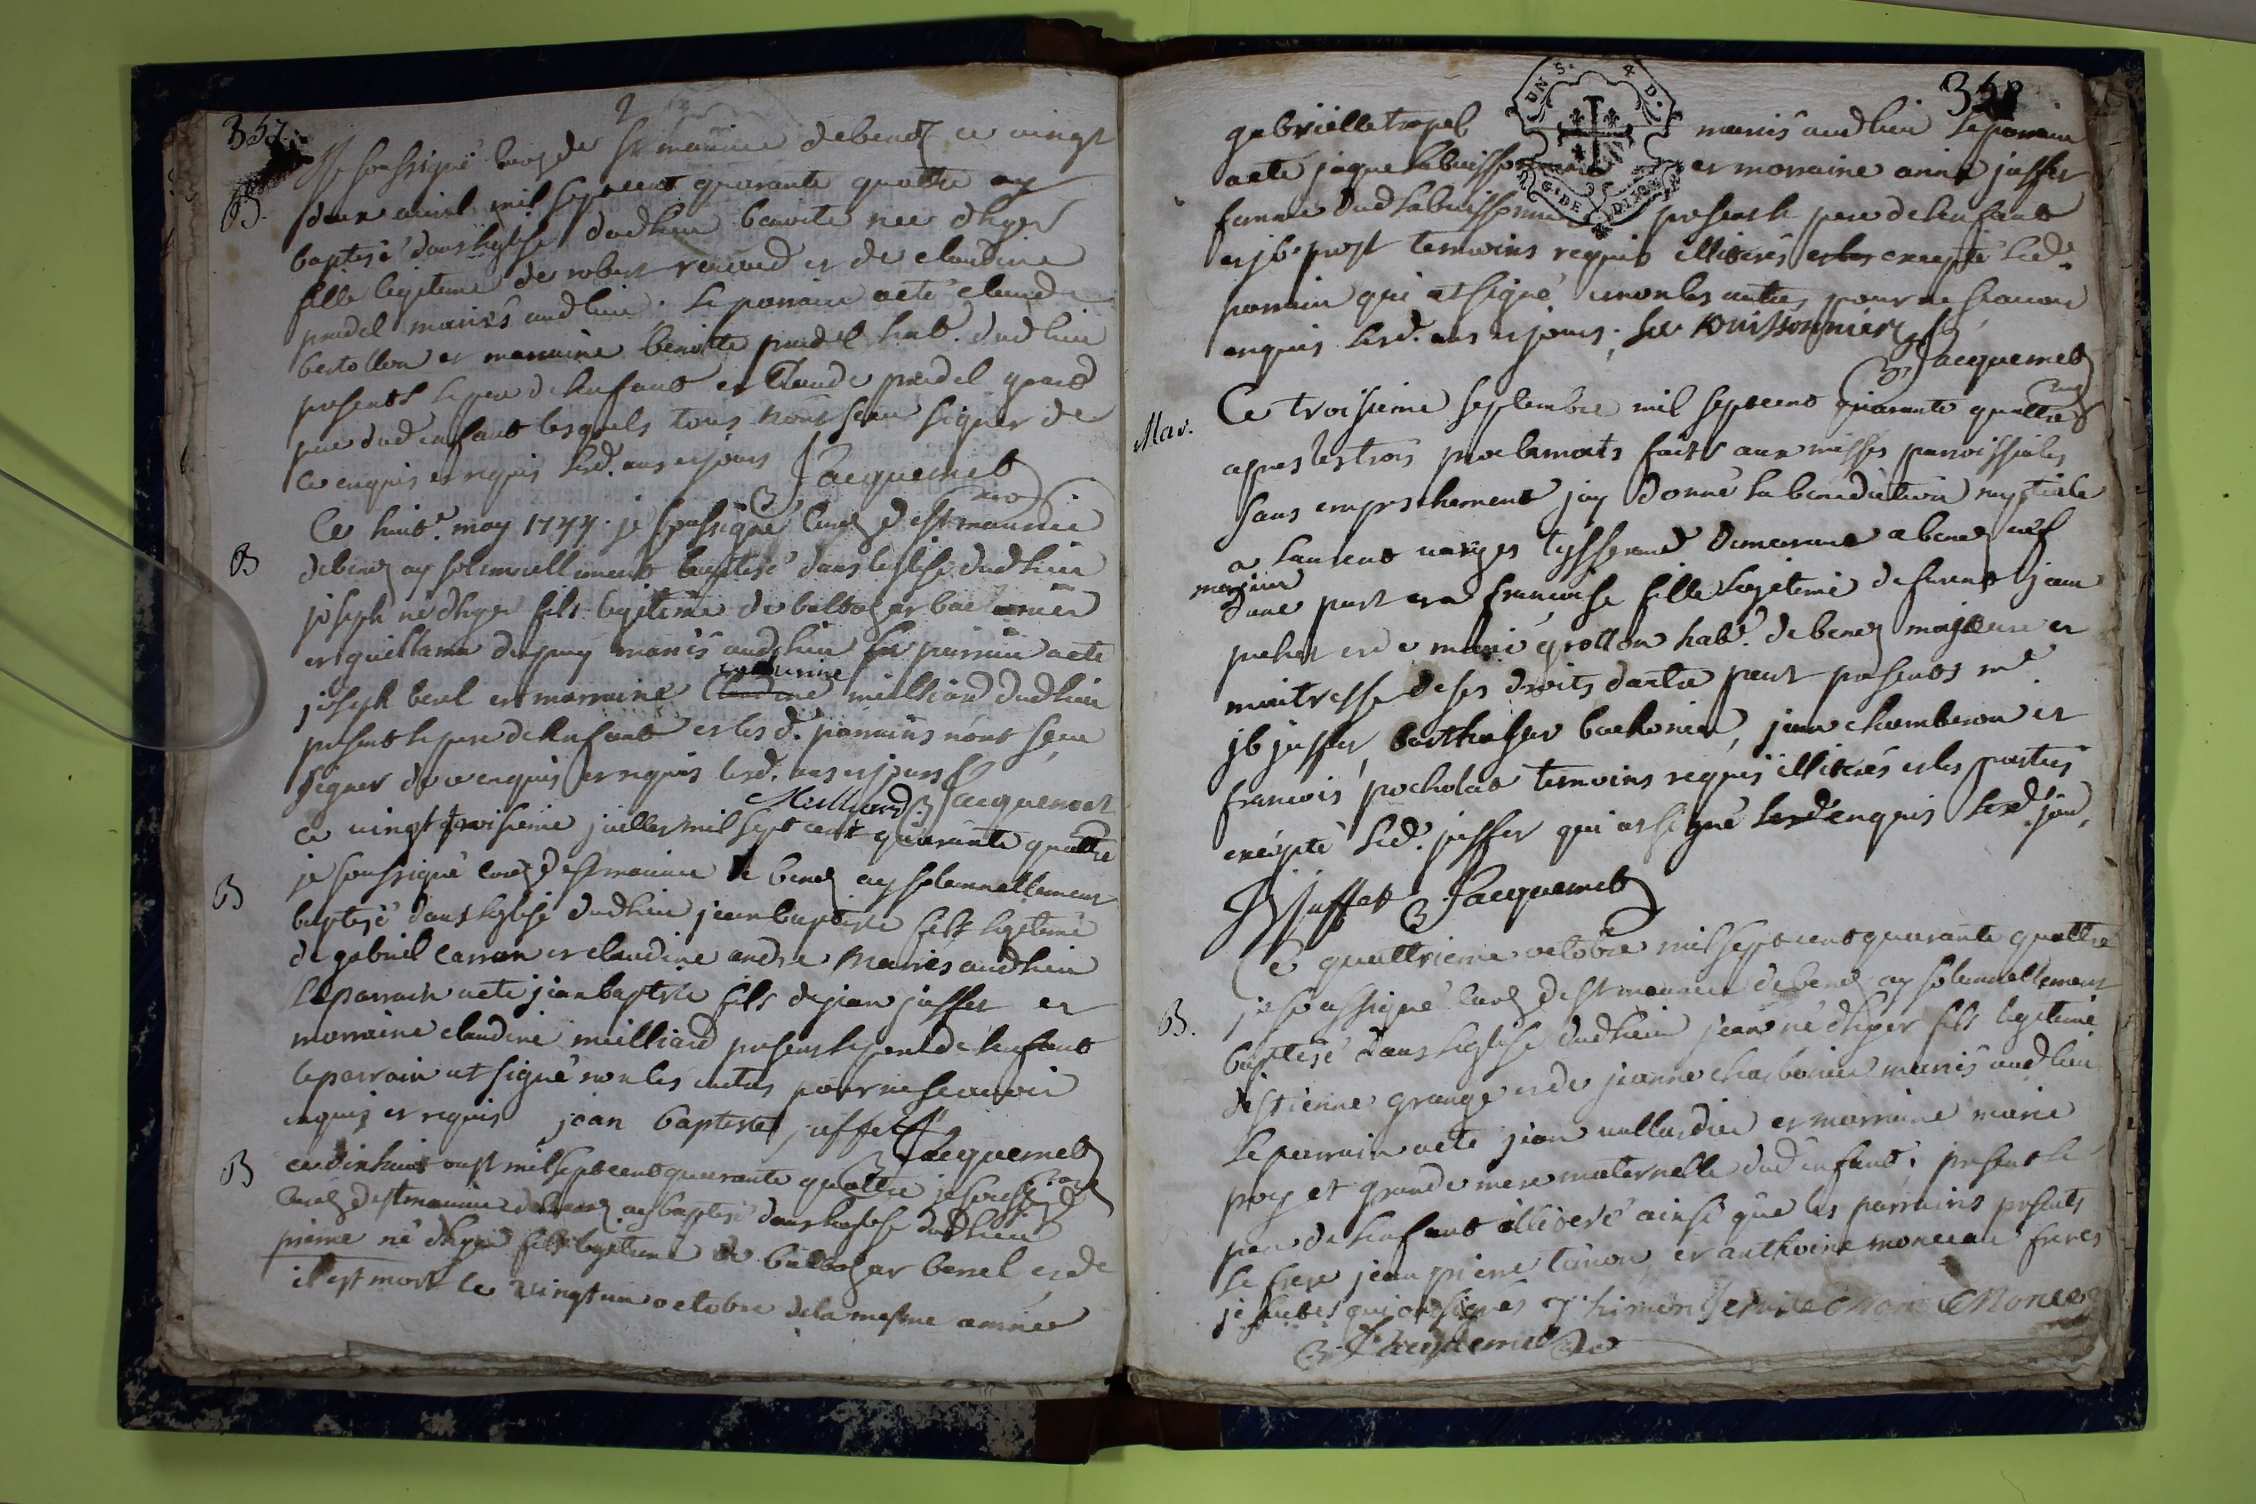 357
Je soussigné curé de st maurice debeney ce vingt
deux avril mil sept cent quarante quattre ay
B.
baptisé dans leglise dudlieu benoite née dhyer
fille legitime de robert renaud et de claudine
pradel mariés audlieu. Le parrain aeté claude
bertollon et marraine benoitte pradel hab. dudlieu
presents le pere de lenfant et Claude pradel grand
pere dud enfant lesquels tous n'ont sceu signer de
ce enquis et requis lesd. ans et jours Jacquemet
curé
Ce huit.e may 1744. je soussigné curé dest maurice
B
debeney ay solemnellement baptisé dans leglise dudlieu
joseph né dhyer fils legitime de baltazar bachonier
et guillama dupuy mariés audlieu le parrain aeté
joseph berel et marraine claudine milliard dudlieu
present le pere de lenfant et les d. parrains n'ont sceu
signer de ce enquis et requis lesd. ans et jours
Milliard Jacquemet
ce vingt troisieme juillet mil sept cent quarante quattre
je soussigné curé dest maurice de beney ay solemnellement
B
baptisé dans leglise dudlieu jean baptiste fils legitime
de gabriel carron et claudine andre mariés audlieu
Leparrain aeté jean baptiste fils de jean juffet et
marraine claudine milliard present le pere de lenfant
le parrain at signé non les autres pour ne scavoir
enquis et requis jean baptiste juffet Jacquemet
curé
B
ce dixhuit aust mil sept cent quarante quattre je soussigné
Curé dest maurice debeney ay baptisé dans leglise dudlieu
pierre né dhyer fils legitime de baltazar berrel et de
il est mort le vingt un octobre dela mesme année
358
gabrielle trepel mariés audlieu le parrain
aeté jaque labuissonniere et marraine anne juffet
UN S. 4 D.
G. DE DIJON
femme dud labuissonniere present le pere de lenfant
et jb prost temoins requis illiterés excepté led.
parrain qui at signé non les autres pour ne scavoir
enquis lesd. ans et jours. la buissonnier
Jacquemet
curé
Mar.
Ce troisieme septembre mil sept cent quarante quattre
apres les trois proclamats faits aux messes paroissiales
sans empechement jay donné la benediction nuptiale
a laurent verges tysserand demeurant a beney
majeur
dune part et a francoise fille legitime de furent jean
pehet et de marie grollon hab. de beney majeure et
maitresse de ses droits dautre part presents me.
jb juffet, barthasar bachonier, jean chamberon et
francois pocholat temoins requis illiterés et les parties
excepté led. juffet qui at signé enquis lesd. jour
Jb juffet Jacquemet
Ce quattrieme octobre mil sept cent quarante quattre
je soussigné curé dest maurice de beney ay solemnellement
B.
baptisé dans leglise dudlieu jean né dhyer fils legitime
destienne grange et de jeanne charbonier mariés audlieu
le parrain aeté jean vallardier et marraine marie
poy et grande mere maternelle dud enfant, present le
pere de lenfant illiteré ainsi que les parrains presents
le frere jean pierre timon et anthoine monceau freres
jesuites qui ont signés timon Monceau
Jacquemet curé